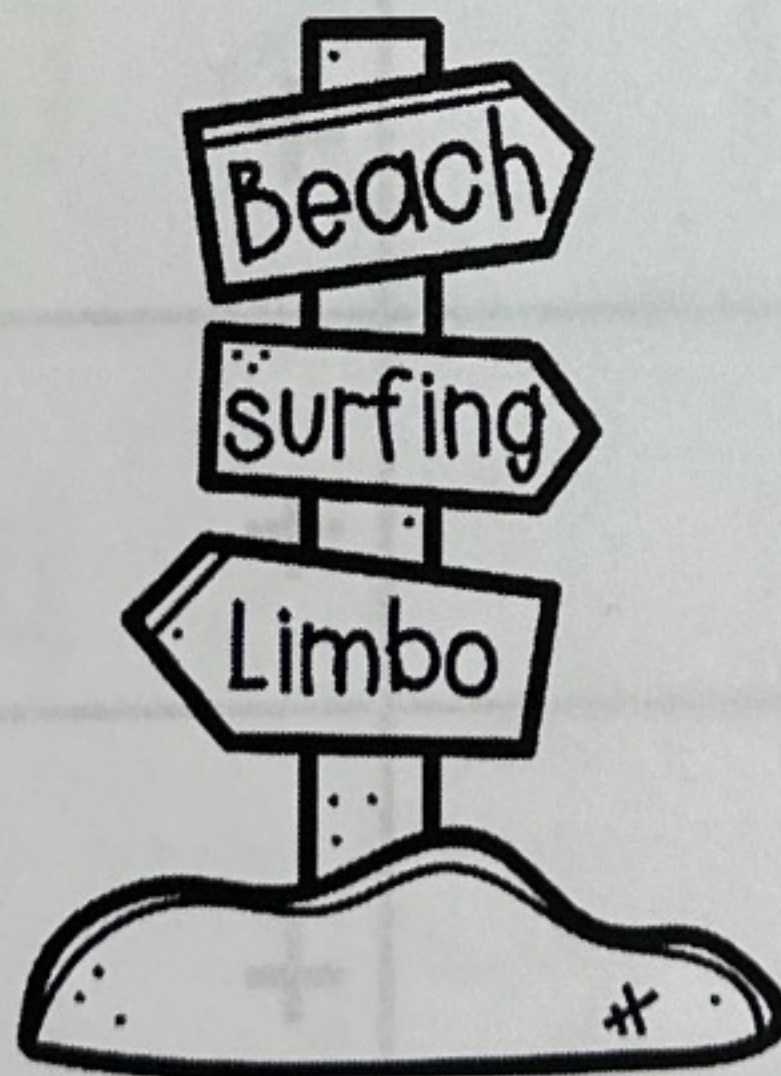 Beach
surfing
Limbo